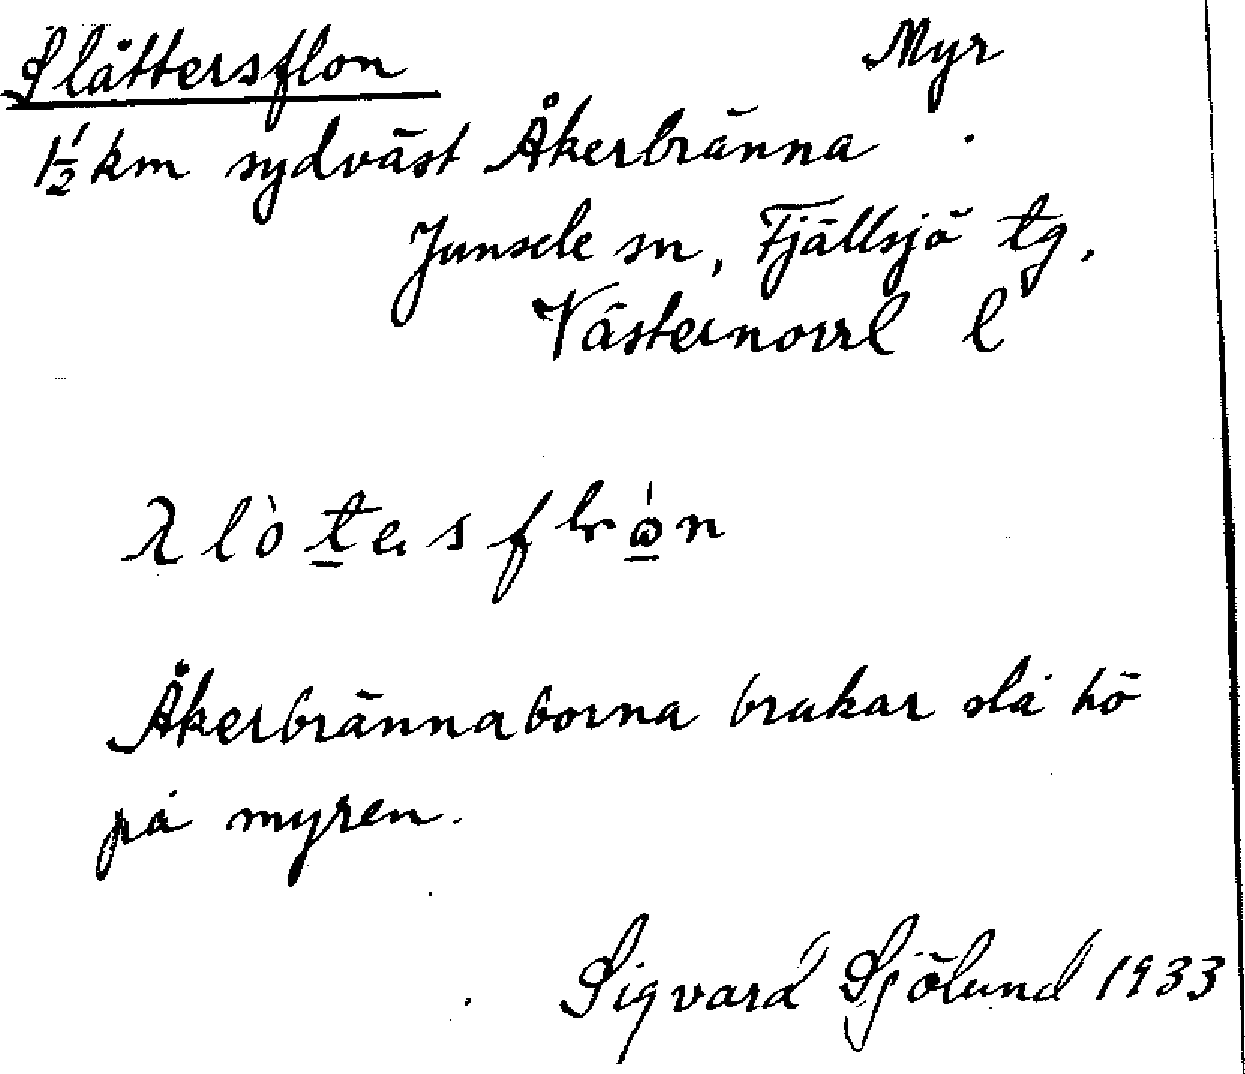 Slåttersflon Myr
1½ km sydväst Åkerbränna
Junsele sn, Fjällsjö tg.
Västernorrl l
Åkerbrännaborna brukar slå hö
på myren.
Sigvard Sjölund 1933